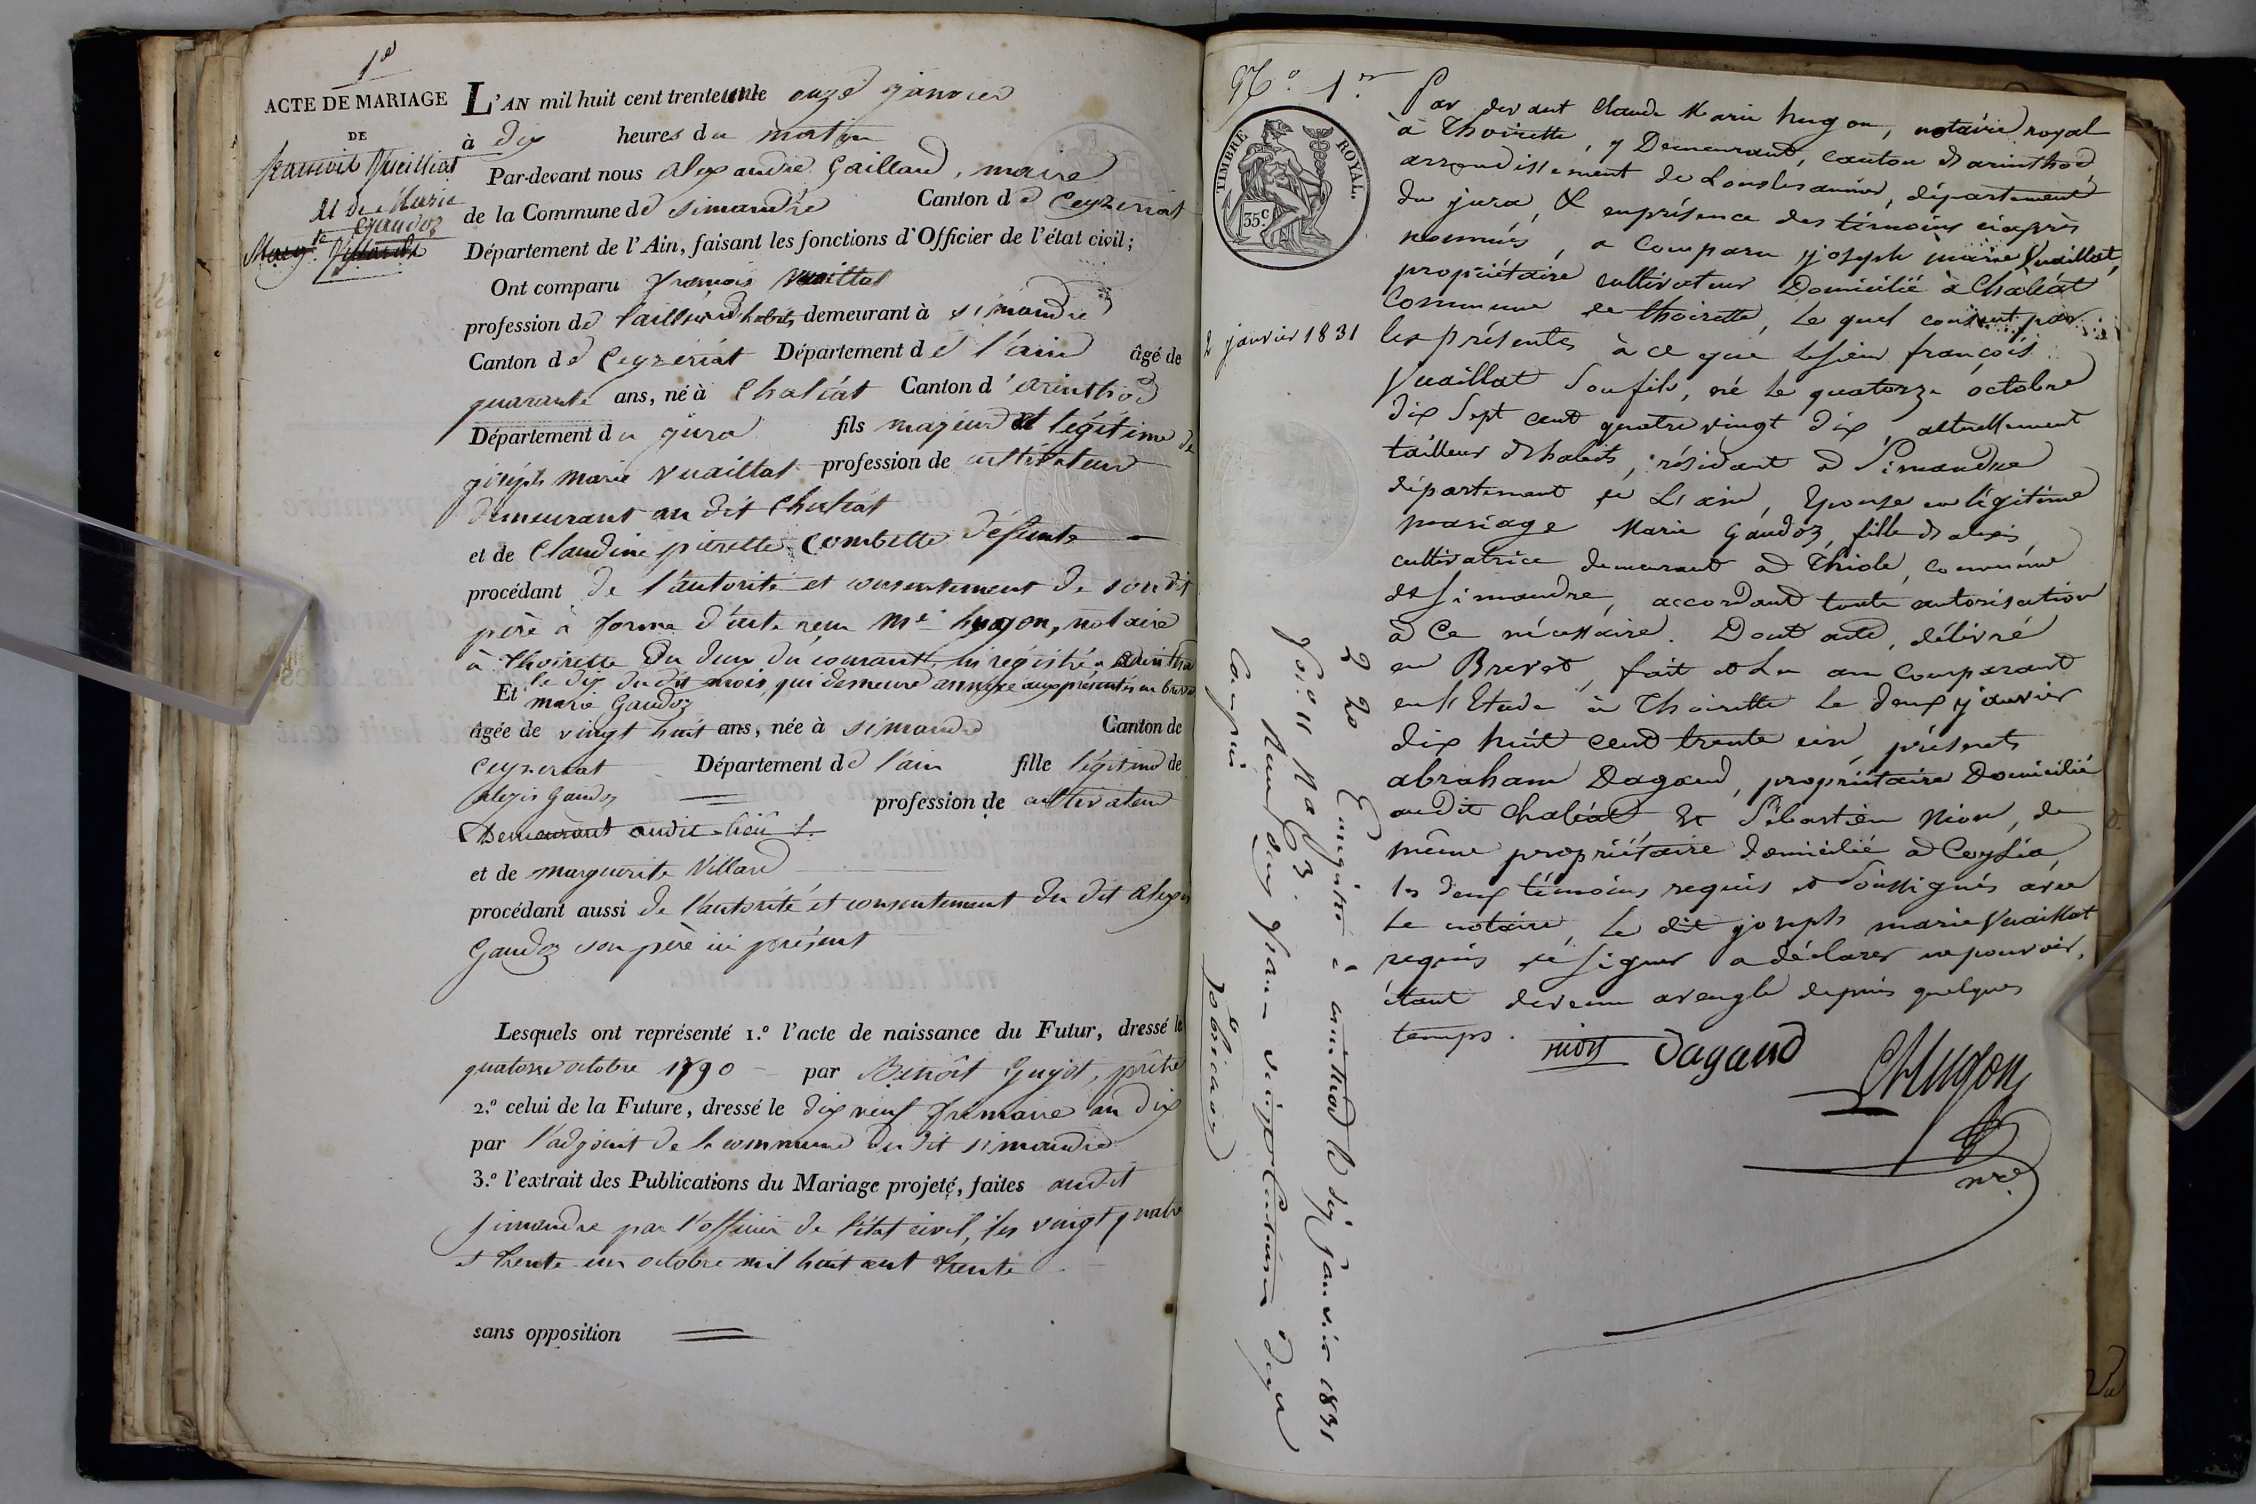 1er
ACTE DE MARIAGE
DE
françois Vuaillat
Et de Marie
Gaudoz
L'AN mil huit cent trente un le onze janvier
à dix heures du matin
Par-devant nous alexandre Gaillard, maire
de la Commune de simandre Canton de Ceyzeriat
Département de l'Ain, faisant les fonctions d'Officier de l'état civil;
Ont comparu françois Vuaillat
profession de tailleur d'habits demeurant à simandre
Canton de Ceyzériat Département de l'ain âgé de
quarante ans, né à Chaléat Canton d'arinthod
Département du jura fils majeur et légitime de
joseph Marie Vuaillat profession de cultivateur
demeurant au dit Chaléat
et de Claudine pierrette Combette défunte
procédant de l'autorité et consentement de son dit
père à forme d'acte reçu Me hugon, notaire
à thoirette du deux du courant, enregistré à arinthod
le dix du dit mois, qui demeure annexé aux présentes en brevet
Et marie Gaudoz
âgée de vingt huit ans, née à simandre Canton de
Ceyzeriat Département de l'ain fille légitime de
alexis Gaudoz profession de cultivateur
Demeurant audit lieu
et de marguerite Villard
procédant aussi de l'autorité et consentement du dit alexis
Gaudoz son père ici présent
Lesquels ont représenté 1.º l'acte de naissance du Futur, dressé le
quatorze octobre 1790 par Benoît Guyot, prêtre
2.º celui de la Future, dressé le dix neuf frimaire an dix
par l'adjoint de la commune du dit simandre
3.º l'extrait des Publications du Mariage projeté, faites audit
simandre par l'officier de l'état civil, les vingt quatre
et trente un octobre mil huit cent trente
sans opposition
Nº 1er
TIMBRE ROYAL.
35c
2 janvier 1831
Par devant Claude Marie hugon, notaire royal
à Thoirette, y Demeurant, canton d'arinthod,
arrondissement de Lonslesaunier, département
du jura, & en présence des témoins ciaprès
nommés, a Comparu joseph marie Vuaillat,
propriétaire cultivateur Domicilié à Chaléat
Commune de thoirette, Le quel consent par
les présentes à ce que le sieur françois
Vuaillat son fils, né le quatorze octobre
dix sept cent quatre vingt dix, actuellement
tailleur d'habits, résidant à Simandre
département de L'ain, Epouse en légitime
mariage Marie Gaudoz, fille d'alexis,
cultivatrice demeurant à Thiole, commune
de Simandre, accordant toute autorisation
à ce nécessaire. Dont acte, délivré
en Brevet, fait et Lu au Comparant
en l'Etude à Thoirette le deux janvier
dix huit cent trente un, présents
abraham Dagaud, propriétaire Domicilié
audit Chaléat Et Sébastien Nion, de
même propriétaire domicilié à Ceyssia,
les deux témoins requis et Soussignés avec
Le notaire, Le dit joseph marie Vuaillat
requis de signer a déclarer ne pouvoir,
étant devenu aveugle depuis quelques
temps.
nion Dagaud CMhugon
nre
220 Enregistré à arinthod le dix janvier 1831
Vol. 11 Nº 63.
compris